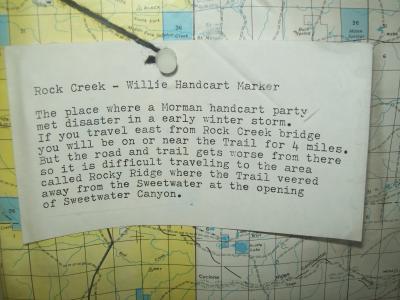 Rock Creek - Willie Handcart Marker
The place where a Morman handcart party
met disaster in a early winter storm.
If you travel east from Rock Creek bridge
you will be on or near the Trail for 4 miles.
But the road and trail gets worse from there
so it is difficult traveling to the area
called Rocky Ridge where the Trail veered
away from the Sweetwater at the opening
of Sweetwater Canyon.
36
36
36
Cyclone